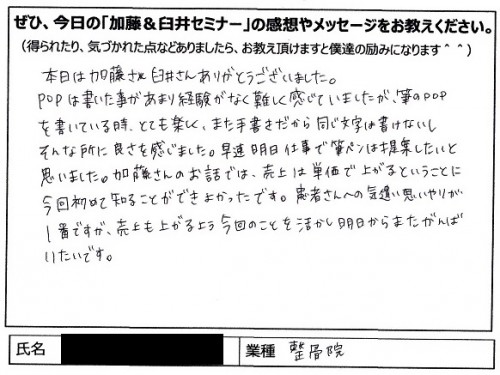 ぜひ、今日の「加藤＆臼井セミナー」の感想やメッセージをお教えください。
（得られたり、気づかれた点などありましたら、お教え頂けますと僕達の励みになります＾＾）
本日は加藤さん臼井さんありがとうございました。
POPは書いた事があまり経験がなく難しく感じていましたが、筆のPOP
を書いている時、とても楽しく、また手書きだから同じ文字は書けないし
そんな所に良さを感じました。早速明日仕事で筆ペンは提案したいと
思いました。加藤さんのお話では、売上は単価で上がるということに
今回初めて知ることができよかったです。患者さんへの気遣い思いやりが
1番ですが、売上も上がるよう今回のことを活かし明日からまたがんば
りたいです。
氏名
業種 整骨院